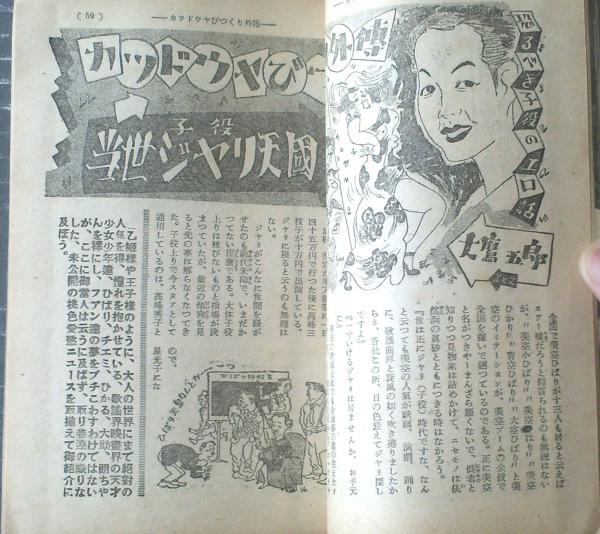 恐るべき子役のエロ話
外傳
大鷹五郎
全國で美空ひばりが十三人も居ると云えば
ひばり〃〃青空ひばり〃〃大空ひばり〃と美
空のイミテーションが、美空ブームの余波で
全國を稼いで廻つているのである。正に美空
と名がつきやーまんざら惡くないで、僞者と
知りつつ見物客は詰めかけて、ニセモノは依
然浜の真砂とともにつきる時はなかろう。
『後は正にジャリ（子役）時代ですな、なん
と云つても美空の人氣が映画、演劇、踊り
に、歌謡曲界と旋風の如く吹き捲りましたか
らネ、各社この所、目の色変えてジャリ探し
ですよ』
『すいけるジャリは居ませんか、お手元
（59）
―カツドウヤびつくり外傳―
カツドウヤびー
当世ジャリ天國
子役
四十五万円で行つた後に高峰三
枝子が十万円で出演している。
ジャリに限ると云うのも無理は
ない。
ジャリがこんなに後間を騒が
せたのも前代未聞で、いまだか
つてない現象である。大体子役
上りは稼びないものと相場が決
まつていたが、最近の傾向を見
ると先の事は解らなくなつてき
た。子役上りで今スタアとして
通用しているのは、高峰秀子と
ので。
星光子にな
ひばり天國なんとか
乙姫様や王子様のように、大人の世界にまで絶対の
人気を得、憧れを抱かせている、歌謡界映画界の天才
少女少年達、ひばり、チエミ、ひかる、大助、頭ちや
んを裸にし、フアン達の夢をブチこわすわけではない
が、ここに御当人は云うに及ばず、取り巻連の織りな
した、未公開の桃色愛慾ニュースを取揃えて御紹介に
及ぼう。